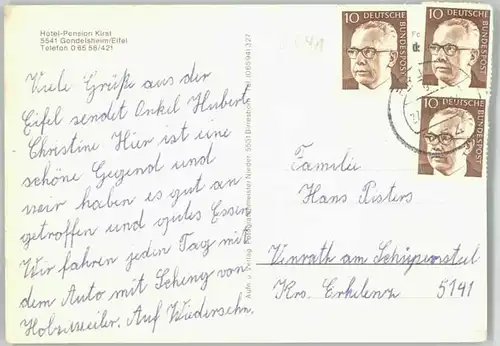 Hotel-Pension Kirst
5541 Gondelsheim/Eifel
Telefon 0 65 56/421
Viele Grüße aus der
Eifel sendet Onkel Hubert
Christine Hier ist eine
schöne Gegend und
wir haben es gut an
getroffen und gutes Essen
Wir fahren jeden Tag mit
dem Auto mit Scheng von
Holzweiler. Auf Wiedersehn.
Aufn. u. Verlag Photographenmeister Nieder 5531 Birresborn Tel. (06594) 327
10 DEUTSCHE BUNDESPOST
10 DEUTSCHE BUNDESPOST
10 DEUTSCHE BUNDESPOST
Familie
Hans Pisters
Venrath am Schüpensteel
Krs. Erkelenz 5141